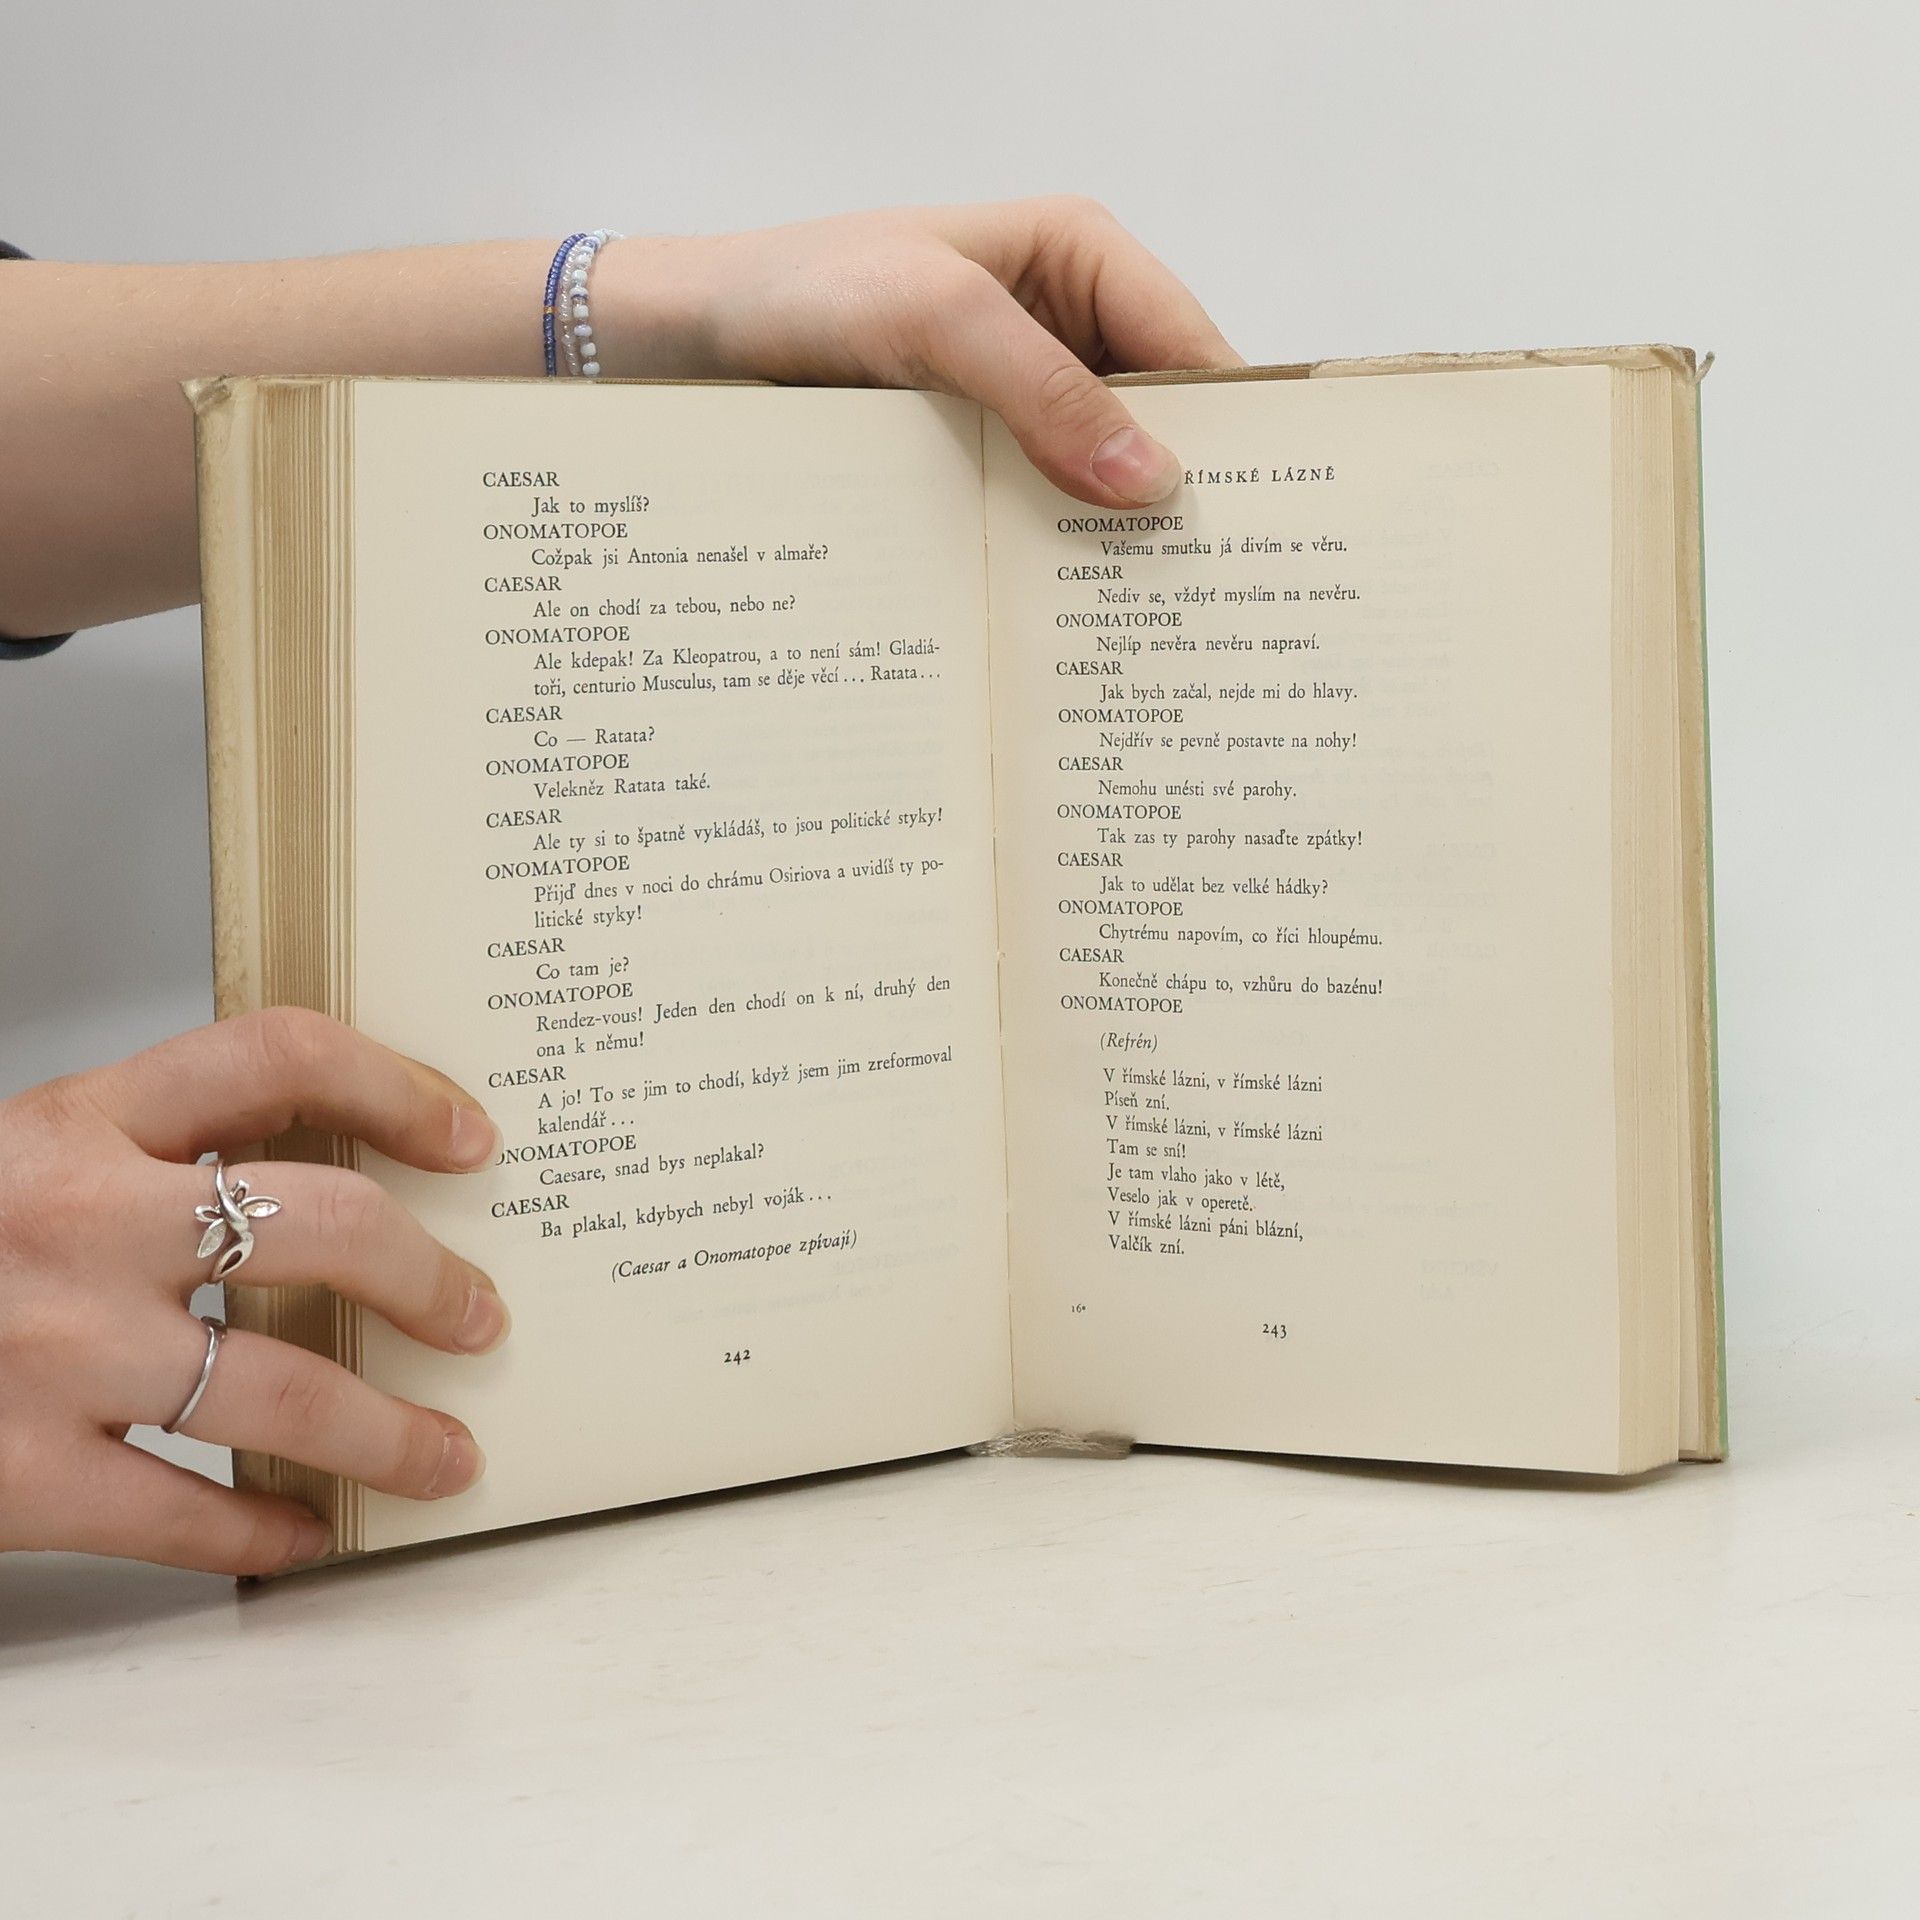 CAESAR
Jak to myslíš?
ONOMATOPOE
Cožpak jsi Antonia nenašel v almaře?
CAESAR
Ale on chodí za tebou, nebo ne?
ONOMATOPOE
Ale kdepak! Za Kleopatrou, a to není sám! Gladiá-
toři, centurio Musculus, tam se děje věcí... Ratata...
CAESAR
Co — Ratata?
ONOMATOPOE
Velekněz Ratata také.
CAESAR
Ale ty si to špatně vykládáš, to jsou politické styky!
ONOMATOPOE
Přijď dnes v noci do chrámu Osiriova a uvidíš ty po-
litické styky!
CAESAR
Co tam je?
ONOMATOPOE
Rendez-vous! Jeden den chodí on k ní, druhý den
ona k němu!
CAESAR
A jo! To se jim to chodí, když jsem jim zreformoval
kalendář...
ONOMATOPOE
Caesare, snad bys neplakal?
CAESAR
Ba plakal, kdybych nebyl voják...
(Caesar a Onomatopoe zpívají)
242
ŘÍMSKÉ LÁZNĚ
ONOMATOPOE
Vašemu smutku já divím se věru.
CAESAR
Nediv se, vždyť myslím na nevěru.
ONOMATOPOE
Nejlíp nevěra nevěru napraví.
CAESAR
Jak bych začal, nejde mi do hlavy.
ONOMATOPOE
Nejdřív se pevně postavte na nohy!
CAESAR
Nemohu unésti své parohy.
ONOMATOPOE
Tak zas ty parohy nasaďte zpátky!
CAESAR
Jak to udělat bez velké hádky?
ONOMATOPOE
Chytrému napovím, co říci hloupému.
CAESAR
Konečně chápu to, vzhůru do bazénu!
ONOMATOPOE
(Refrén)
V římské lázni, v římské lázni
Píseň zní.
V římské lázni, v římské lázni
Tam se sní!
Je tam vlaho jako v létě,
Veselo jak v operetě.
V římské lázni páni blázní,
Valčík zní.
16*
243